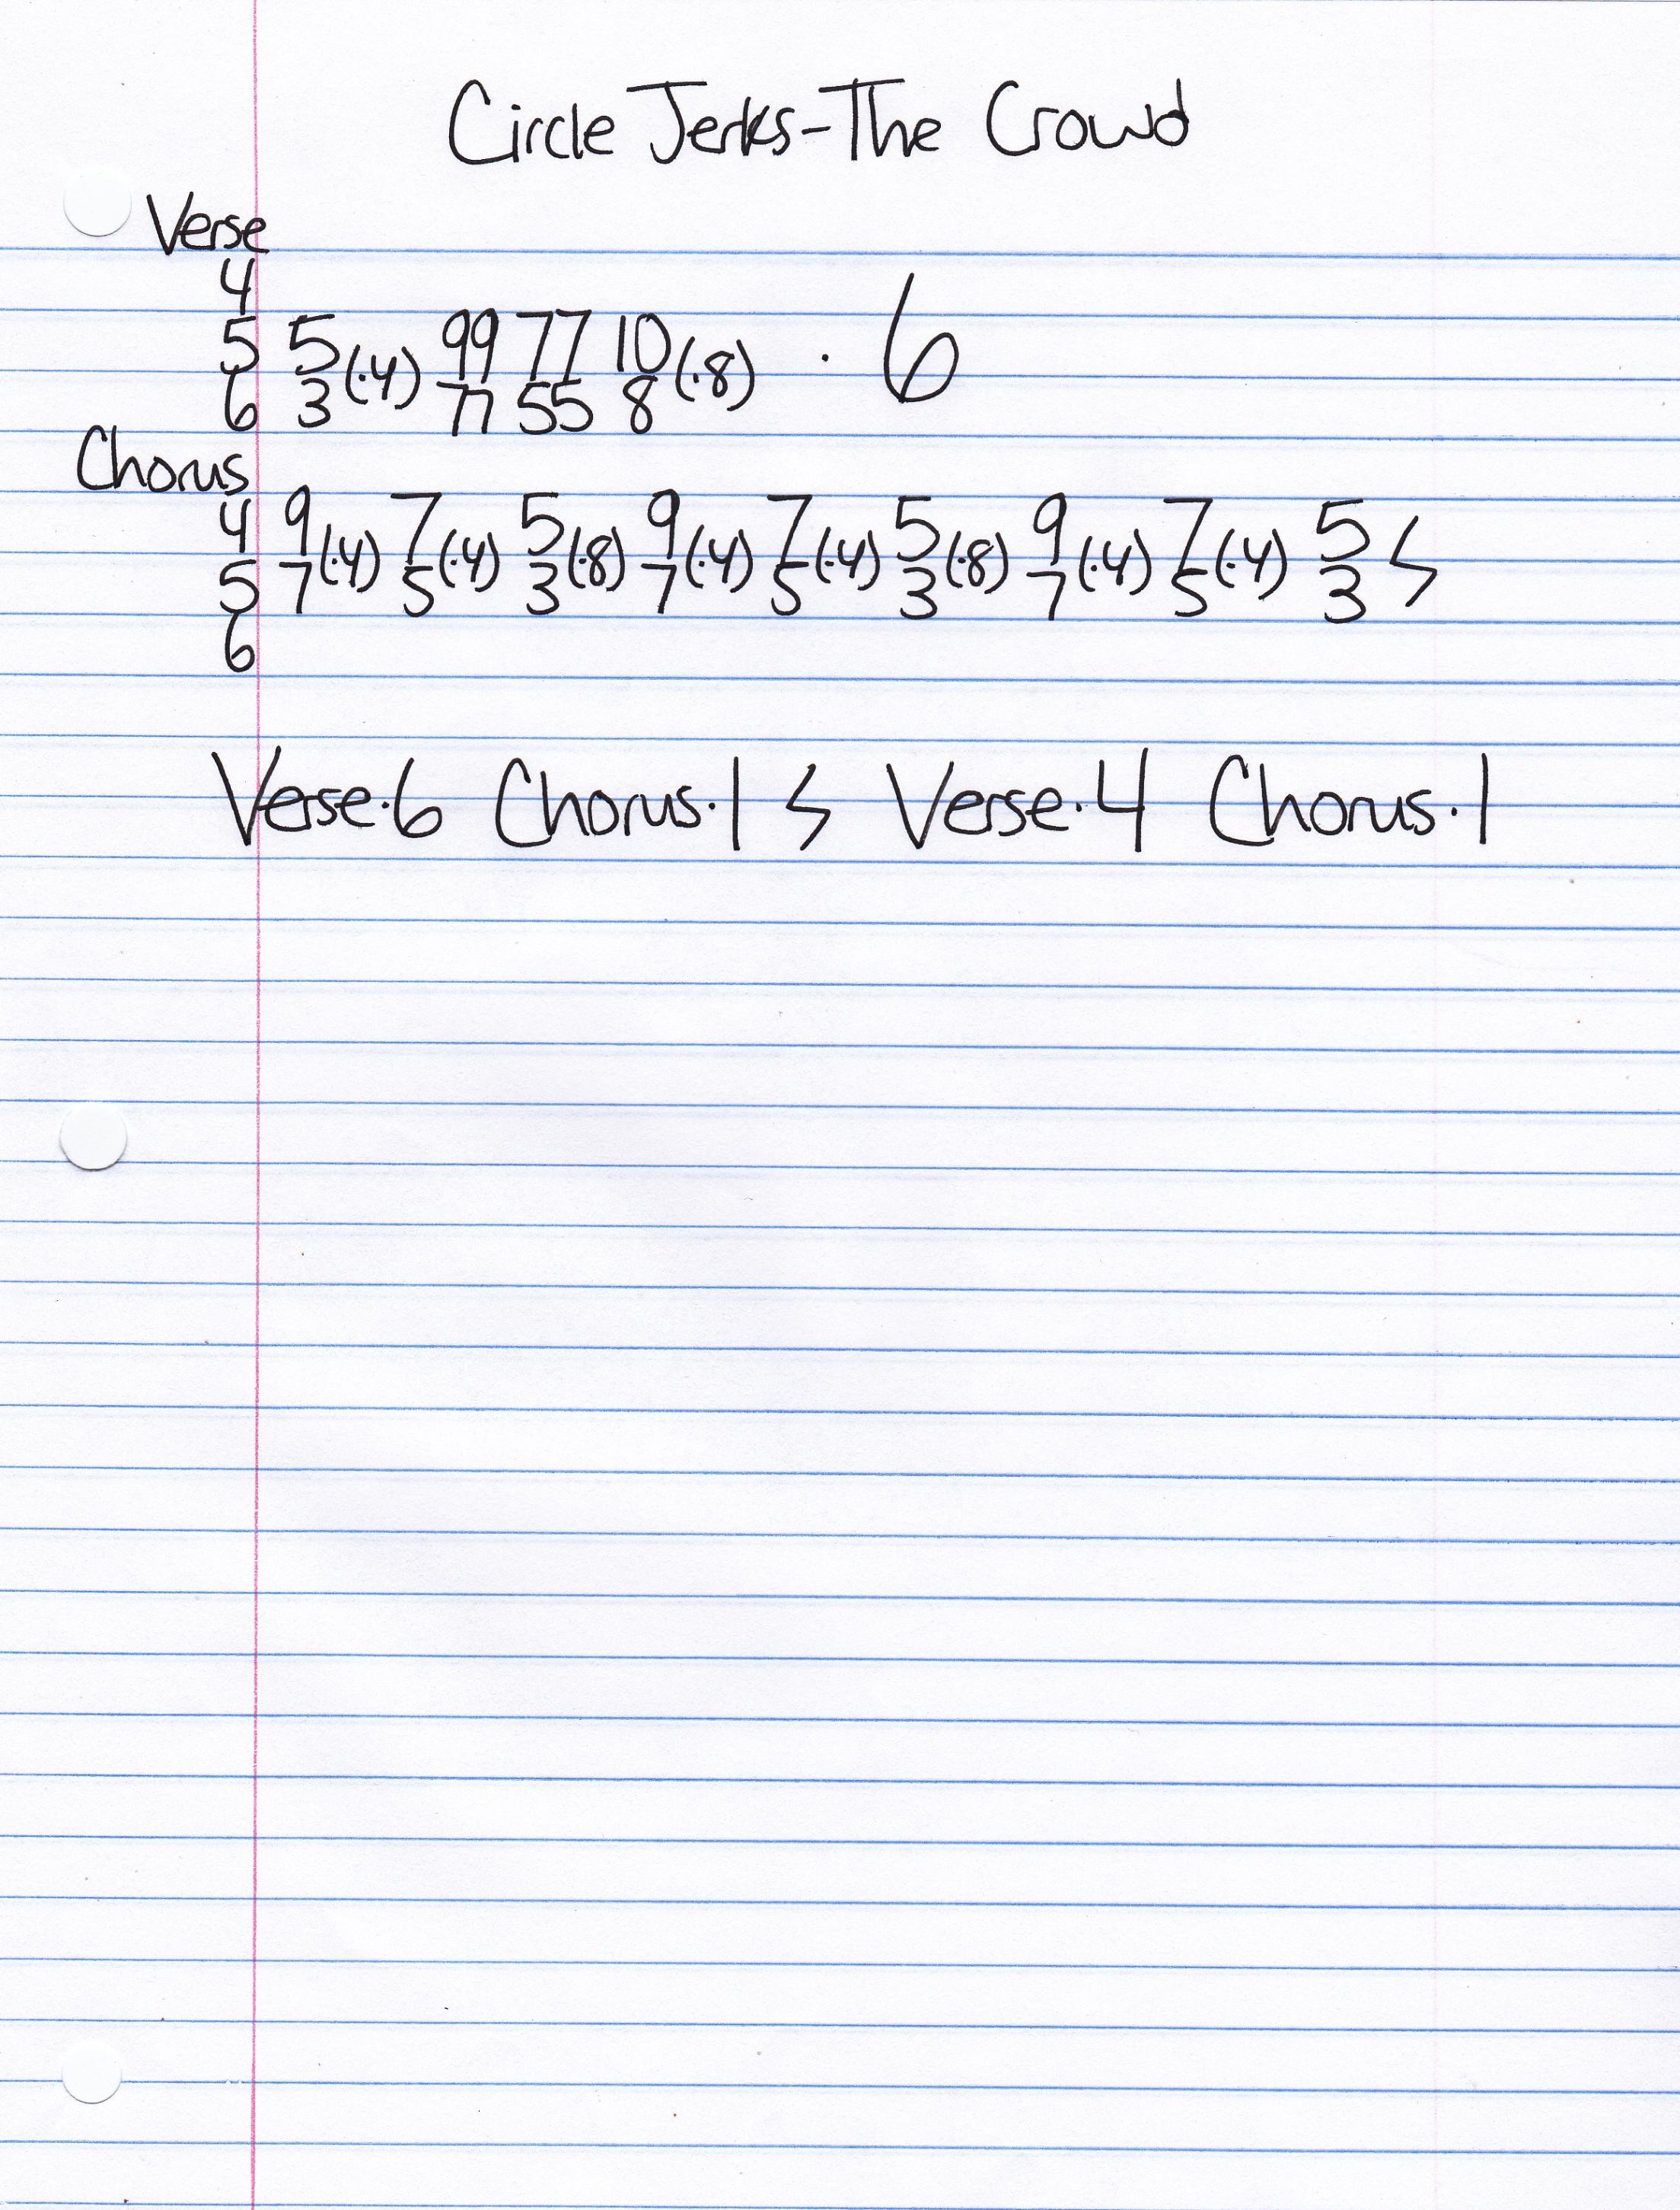 Circle Jerks-The Crowd
Verse
4
5 5(·4) 99 77 10(·8) · 6
6 3 77 55 8
Chorus
4 9(·4) 7(·4) 5(·8) 9(·4) 7(·4) 5(·8) 9(·4) 7(·4) 5
5 7 5 3 7 5 3 7 5 3
6
Verse·6 Chorus·1 Verse·4 Chorus·1